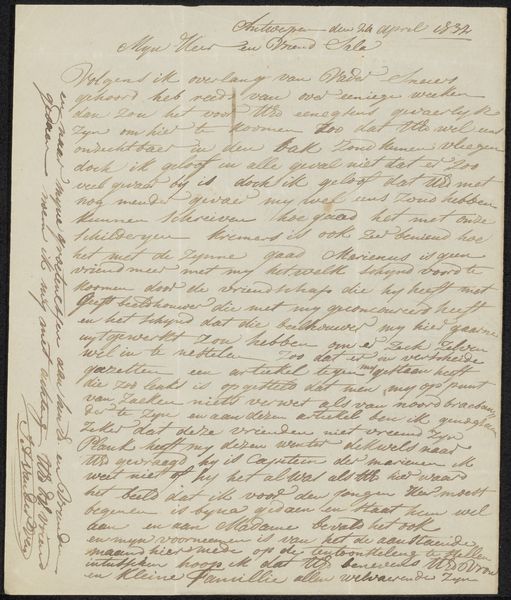 Antwerpen den 24 April 1832
Myn Heer en Vriend Sala
Volgens ik overlang van Vader Sneiers
gehoord heb reeds van over eenige weeken
dan zou het voor UEd eenegsens gevaerlyk
zyn om hier te koomen zoo dat UEd wel eens
onzechtbaer in den bak zoud kunnen vliegen
doch ik geloof en alle geval niet dat er zoo
veel gevaer by is doch ik geloof dat UEd met
nog minder gevaer my wel eens zoud hebben
kunnen schrieven hoe gaad het met onze
schilderyen Kremers is ook zeer beniend hoe
het met de zynne gaad Marienus is geen
vriend meer met my hetwelk schynd voord te
koomen door de vriendschap die hy heeft met
beeldhouwer die met my geconcureerd heeft
en het schynd dat die beelhouwer my hier gaerne
uytgewerkt zou hebben om er zich zelven
wil in te nettelen zoo dat er in verscheide
gazetten een artikel tegen my gestaen heeft
die zoo leaks is opgesteld dat men my op punt
van zaeken niets verwet als van noord braeban
der te zyn en aan dezen artikel ben ik
zeker dat deze vrienden niet vreemd zyn
Plank heeft my dezen winter dikwels naar
UEd gevraegd hy is Capitein der marienen ik
weet niet of hy het al was als UEd hier waard
het beeld dat ik voor den jongen Heer moest
begenen is byna gedaen en staat hem wel
aan en aan Madame bevald het ook
en myn voorneemen is van het de aanstaende
maand hier mede op de tentoonsteling te stellen
intusschen hoop ik dat UEd benevens UEd Vrou
en Kleine Famillie allen welvaerende zyn
en naar myne groetenissen aan UEd en Vrienden
gedaen noem ik my met achting UEd Vriend
J. A. Van der Ven